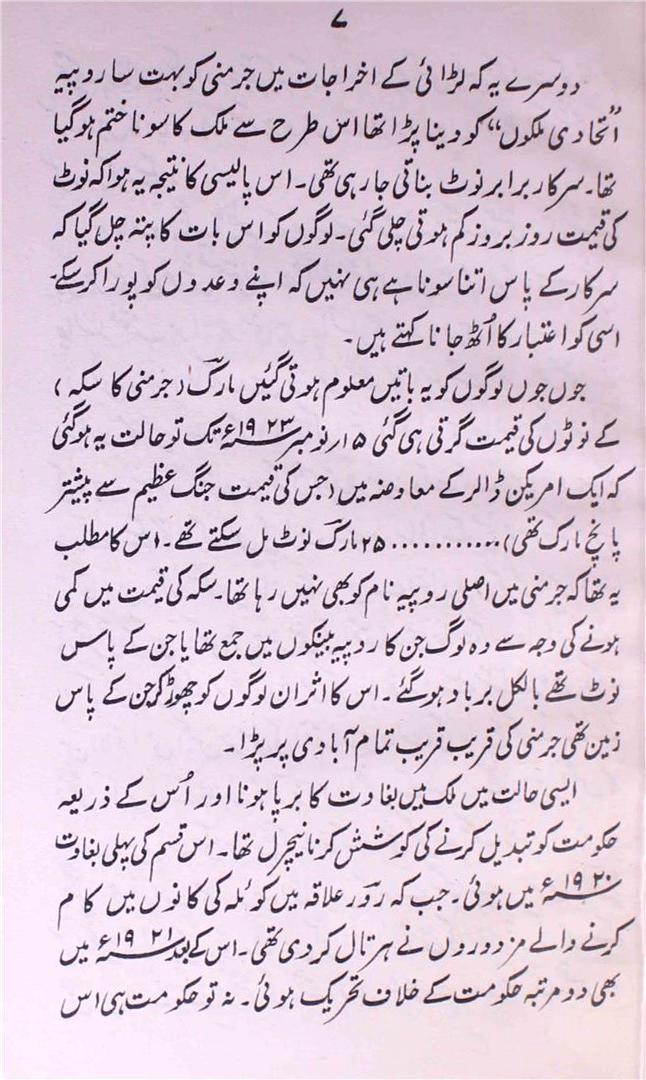 ۷
دوسرے یہ کہ لڑائی کے اخراجات میں جرمنی کو بہت سا روپیہ
”اتحادی ملکوں“ کو دینا پڑا تھا اس طرح سے ملک کا سونا ختم ہو گیا
تھا۔ سرکار برابر نوٹ بناتی جا رہی تھی۔ اس پالیسی کا نتیجہ یہ ہوا کہ نوٹ
کی قیمت روز بروز کم ہوتی چلی گئی۔ لوگوں کو اس بات کا پتہ چل گیا کہ
سرکار کے پاس اتنا سونا ہے ہی نہیں کہ اپنے وعدوں کو پورا کر سکے۔
اسی کو اعتبار کا اُٹھ جانا کہتے ہیں۔
جوں جوں لوگوں کو یہ باتیں معلوم ہوتی گئیں مارک (جرمنی کا سکہ)
کے نوٹوں کی قیمت گرتی ہی گئی ۱۵ر نومبر ۱۹۲۳ء تک تو حالت یہ ہو گئی
کہ ایک امریکن ڈالر کے معاوضہ میں (جس کی قیمت جنگ عظیم سے پیشتر
پانچ مارک تھی) ............ ۲۵ مارک نوٹ مل سکتے تھے۔ اس کا مطلب
یہ تھا کہ جرمنی میں اصلی روپیہ نام کو بھی نہیں رہا تھا۔ سکہ کی قیمت میں کمی
ہونے کی وجہ سے وہ لوگ جن کا روپیہ بینکوں میں جمع تھا یا جن کے پاس
نوٹ تھے بالکل برباد ہو گئے۔ اس کا اثر ان لوگوں کو چھوڑ کر جن کے پاس
زمین تھی جرمنی کی قریب قریب تمام آبادی پر پڑا۔
ایسی حالت میں ملک میں بغاوت کا برپا ہونا اور اُس کے ذریعہ
حکومت کو تبدیل کرنے کی کوشش کرنا نیچرل تھا۔ اس قسم کی پہلی بغاوت
۱۹۲۰ء میں ہوئی۔ جب کہ روّر علاقہ میں کوئلہ کی کانوں میں کام
کرنے والے مزدوروں نے ہڑتال کر دی تھی۔ اس کے بعد ۱۹۲۱ء میں
بھی دو مرتبہ حکومت کے خلاف تحریک ہوئی۔ نہ تو حکومت ہی اس